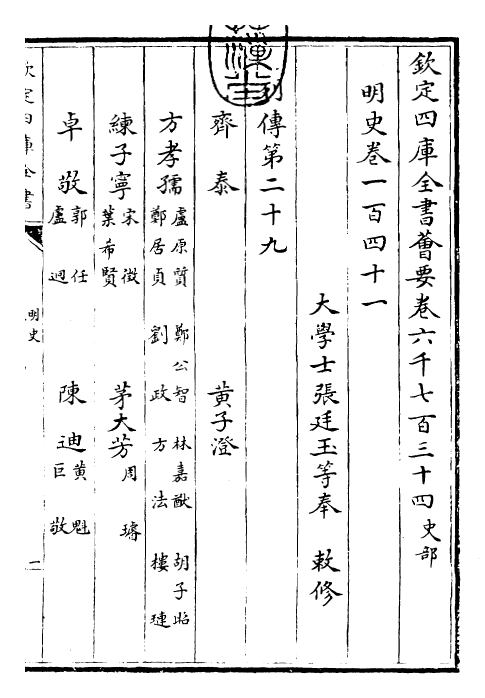 欽定四庫全書薈要卷六千七百三十四史部
明史卷一百四十一
大學士張廷玉等奉 敕修
列傳第二十九
齊泰 黃子澄
方孝孺 盧原質 鄭公智 林嘉猷 胡子昭
鄭居貞 劉政 方法 樓璉
練子寧 宋徵
葉希賢 茅大芳 周璿
卓敬 郭任
盧迥 陳迪 黃魁
巨敬
欽定四庫全書
明史